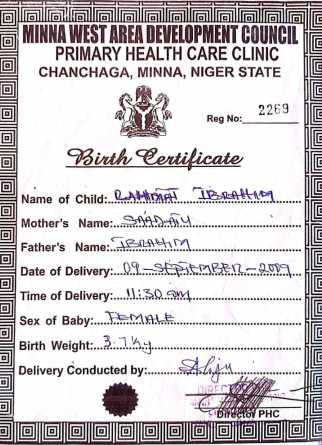 MINNA WEST AREA DEVELOPMENT COUNCIL
PRIMARY HEALTH CARE CLINIC
CHANCHAGA, MINNA, NIGER STATE
Reg No: 2269
Birth Certificate
Name of Child: IBRAHIM
Mother's Name: SAADATU
Father's Name: IBRAHIM
Date of Delivery: 09-SEPTEMBER-2007
Time of Delivery: 11:30 am
Sex of Baby: FEMALE
Birth Weight: 3.7kg
Delivery Conducted by:
Director PHC